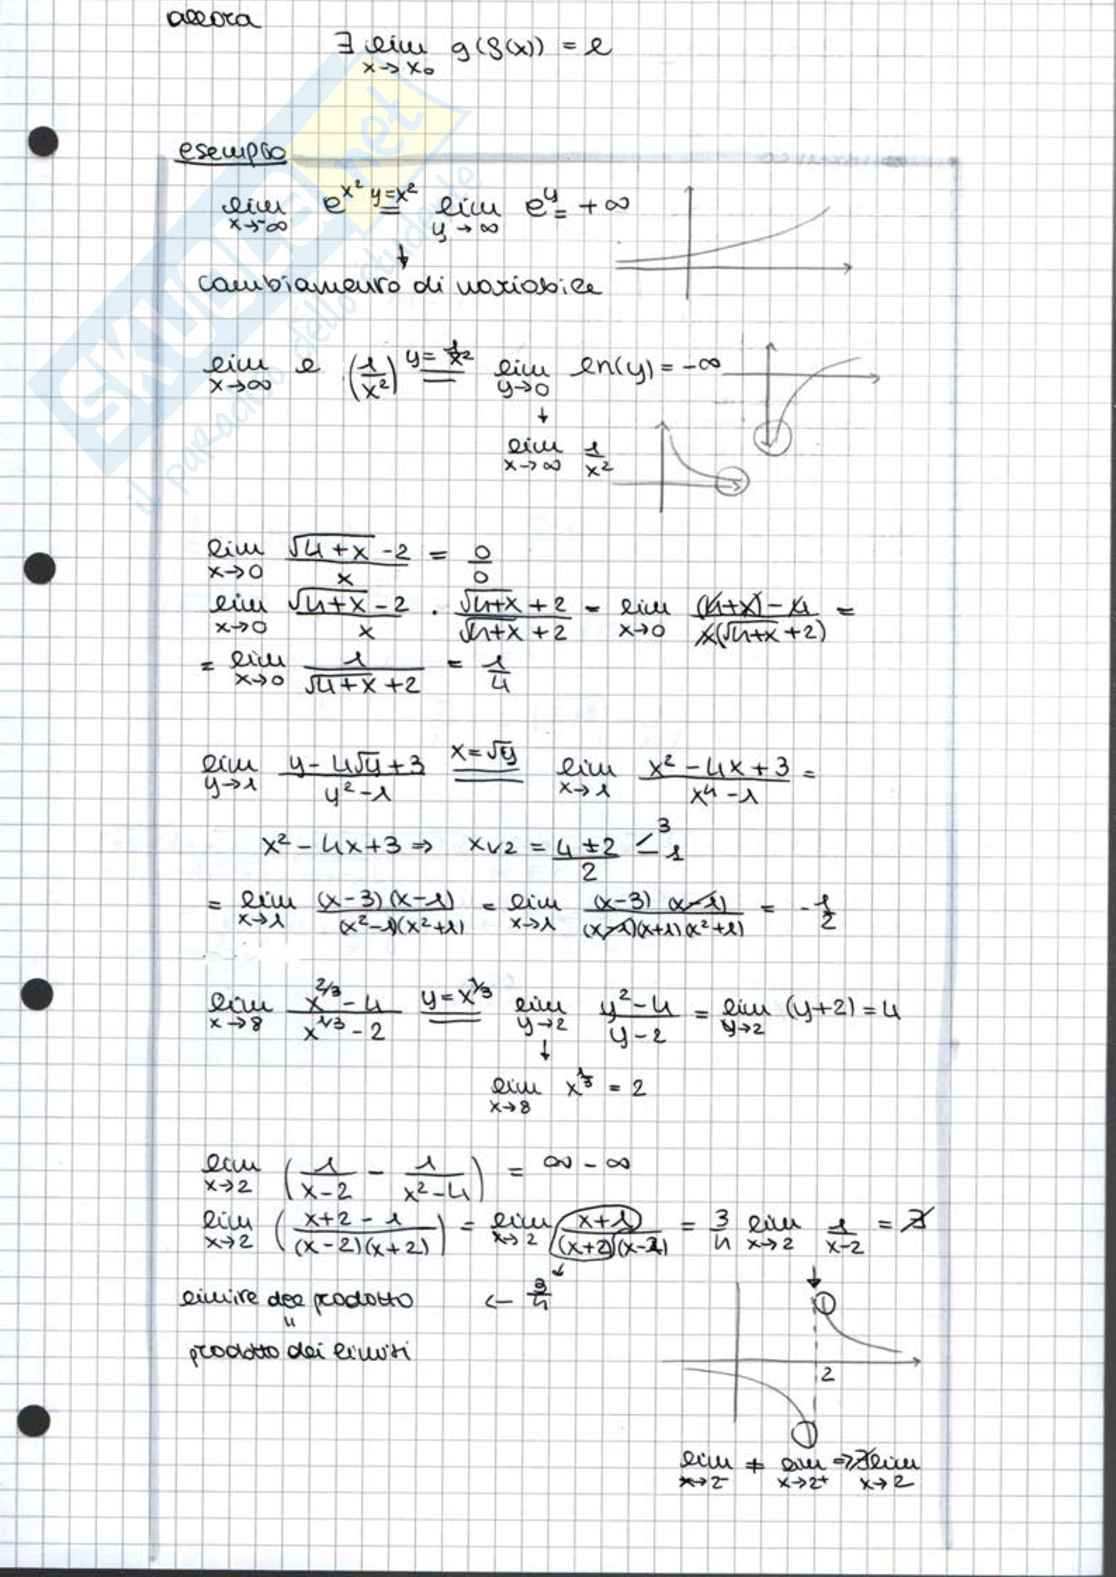 allora
∃ lim x→x₀ g(f(x)) = l
esempio
lim x→-∞ e^x² y=x² = lim y→∞ e^y = +∞
↓
cambiamento di variabile
lim x→∞ e (1/x²) y=1/x² = lim y→0 ln(y) = -∞
↓
lim x→∞ 1/x²
lim x→0 (√4+x - 2)/x = 0/0
lim x→0 (√4+x - 2)/x · (√4+x + 2)/(√4+x + 2) = lim x→0 ((4+x) - 4)/(x(√4+x + 2)) =
= lim x→0 1/(√4+x + 2) = 1/4
lim y→1 (y - 4√y + 3)/(y² - 1) x=√y = lim x→1 (x² - 4x + 3)/(x⁴ - 1) =
x² - 4x + 3 ⇒ x1/2 = (4 ± 2)/2 < 3 1
= lim x→1 (x-3)(x-1)/(x²-1)(x²+1) = lim x→1 (x-3)(x-1)/(x-1)(x+1)(x²+1) = -1/2
lim x→8 (x^2/3 - 4)/(x^1/3 - 2) y=x^1/3 = lim y→2 (y² - 4)/(y - 2) = lim y→2 (y+2) = 4
↓
lim x→8 x^1/3 = 2
lim x→2 (1/(x-2) - 1/(x²-4)) = ∞ - ∞
lim x→2 ((x+2-1)/((x-2)(x+2))) = lim x→2 (x+1)/((x+2)(x-2)) = 3/4 lim x→2 1/(x-2) = ∄
limite del prodotto ← 3/4
"
prodotto dei limiti
2
lim x→2⁻ ≠ lim x→2⁺ ⇒ ∄ lim x→2
SKUOLA.net
il paradiso dello studente